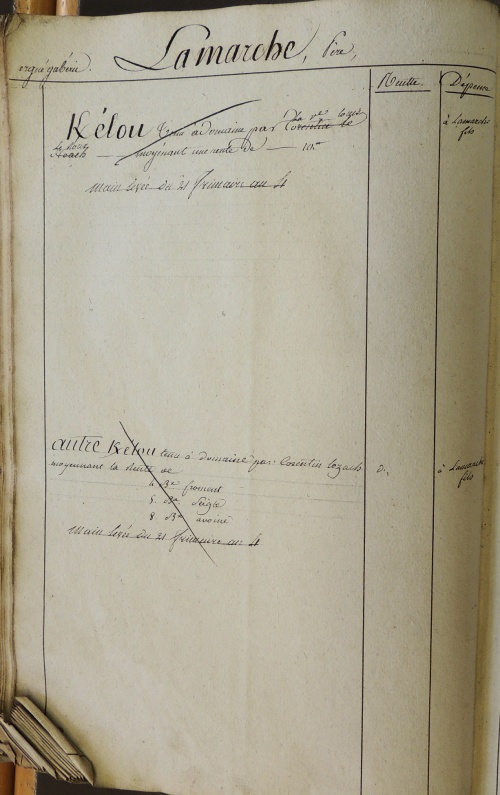 ergué gabéric. Lamarche, Père,
Rentes. Dépense
Kélou tenu à domaine par Corentin Le
La ve Lozach
moyenant une rente de — 10
à Lamarche
fils
main levée du 21 frimaire an 4
autre Kélou tenu à domaine par Corentin Lozach
moyennant la Rente de
4. Bx froment
5. Bx Seigle
8. Bx avoine
à Lamarche
fils
main levée du 21 frimaire an 4